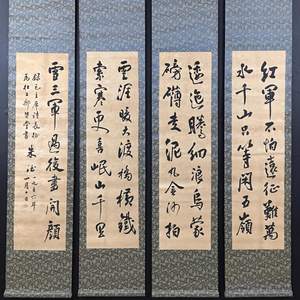 紅軍不怕遠征難萬
水千山只等閑五嶺
逶迤騰細浪烏蒙
磅礴走泥丸金沙拍
雲崖暖大渡橋橫鐵
索寒更喜岷山千里
雪三軍過後盡開顏
錄毛主席詩長征
朱德